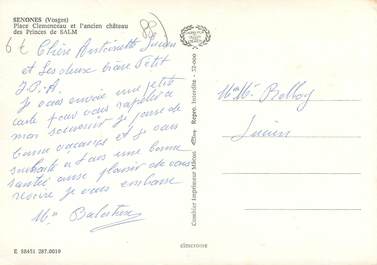 SENONES (Vosges)
Place Clemenceau et l'ancien château
des Princes de SALM
88
6 €
Chère Antoinette Lucien
et Les deux Petit
J.P.A.
Je vous envoie une petit
carte pour vous rapeler a
mon souvenir je passe de
bonne vacances et je vous
souhaite a tous une bonne
santée au plaisir de vous
revoire je vous embrasse
Mme
E 88451 287.0019
Combier Imprimeur Mâcon
Repro. Interdite - 72-000
cimcrome
Lucien